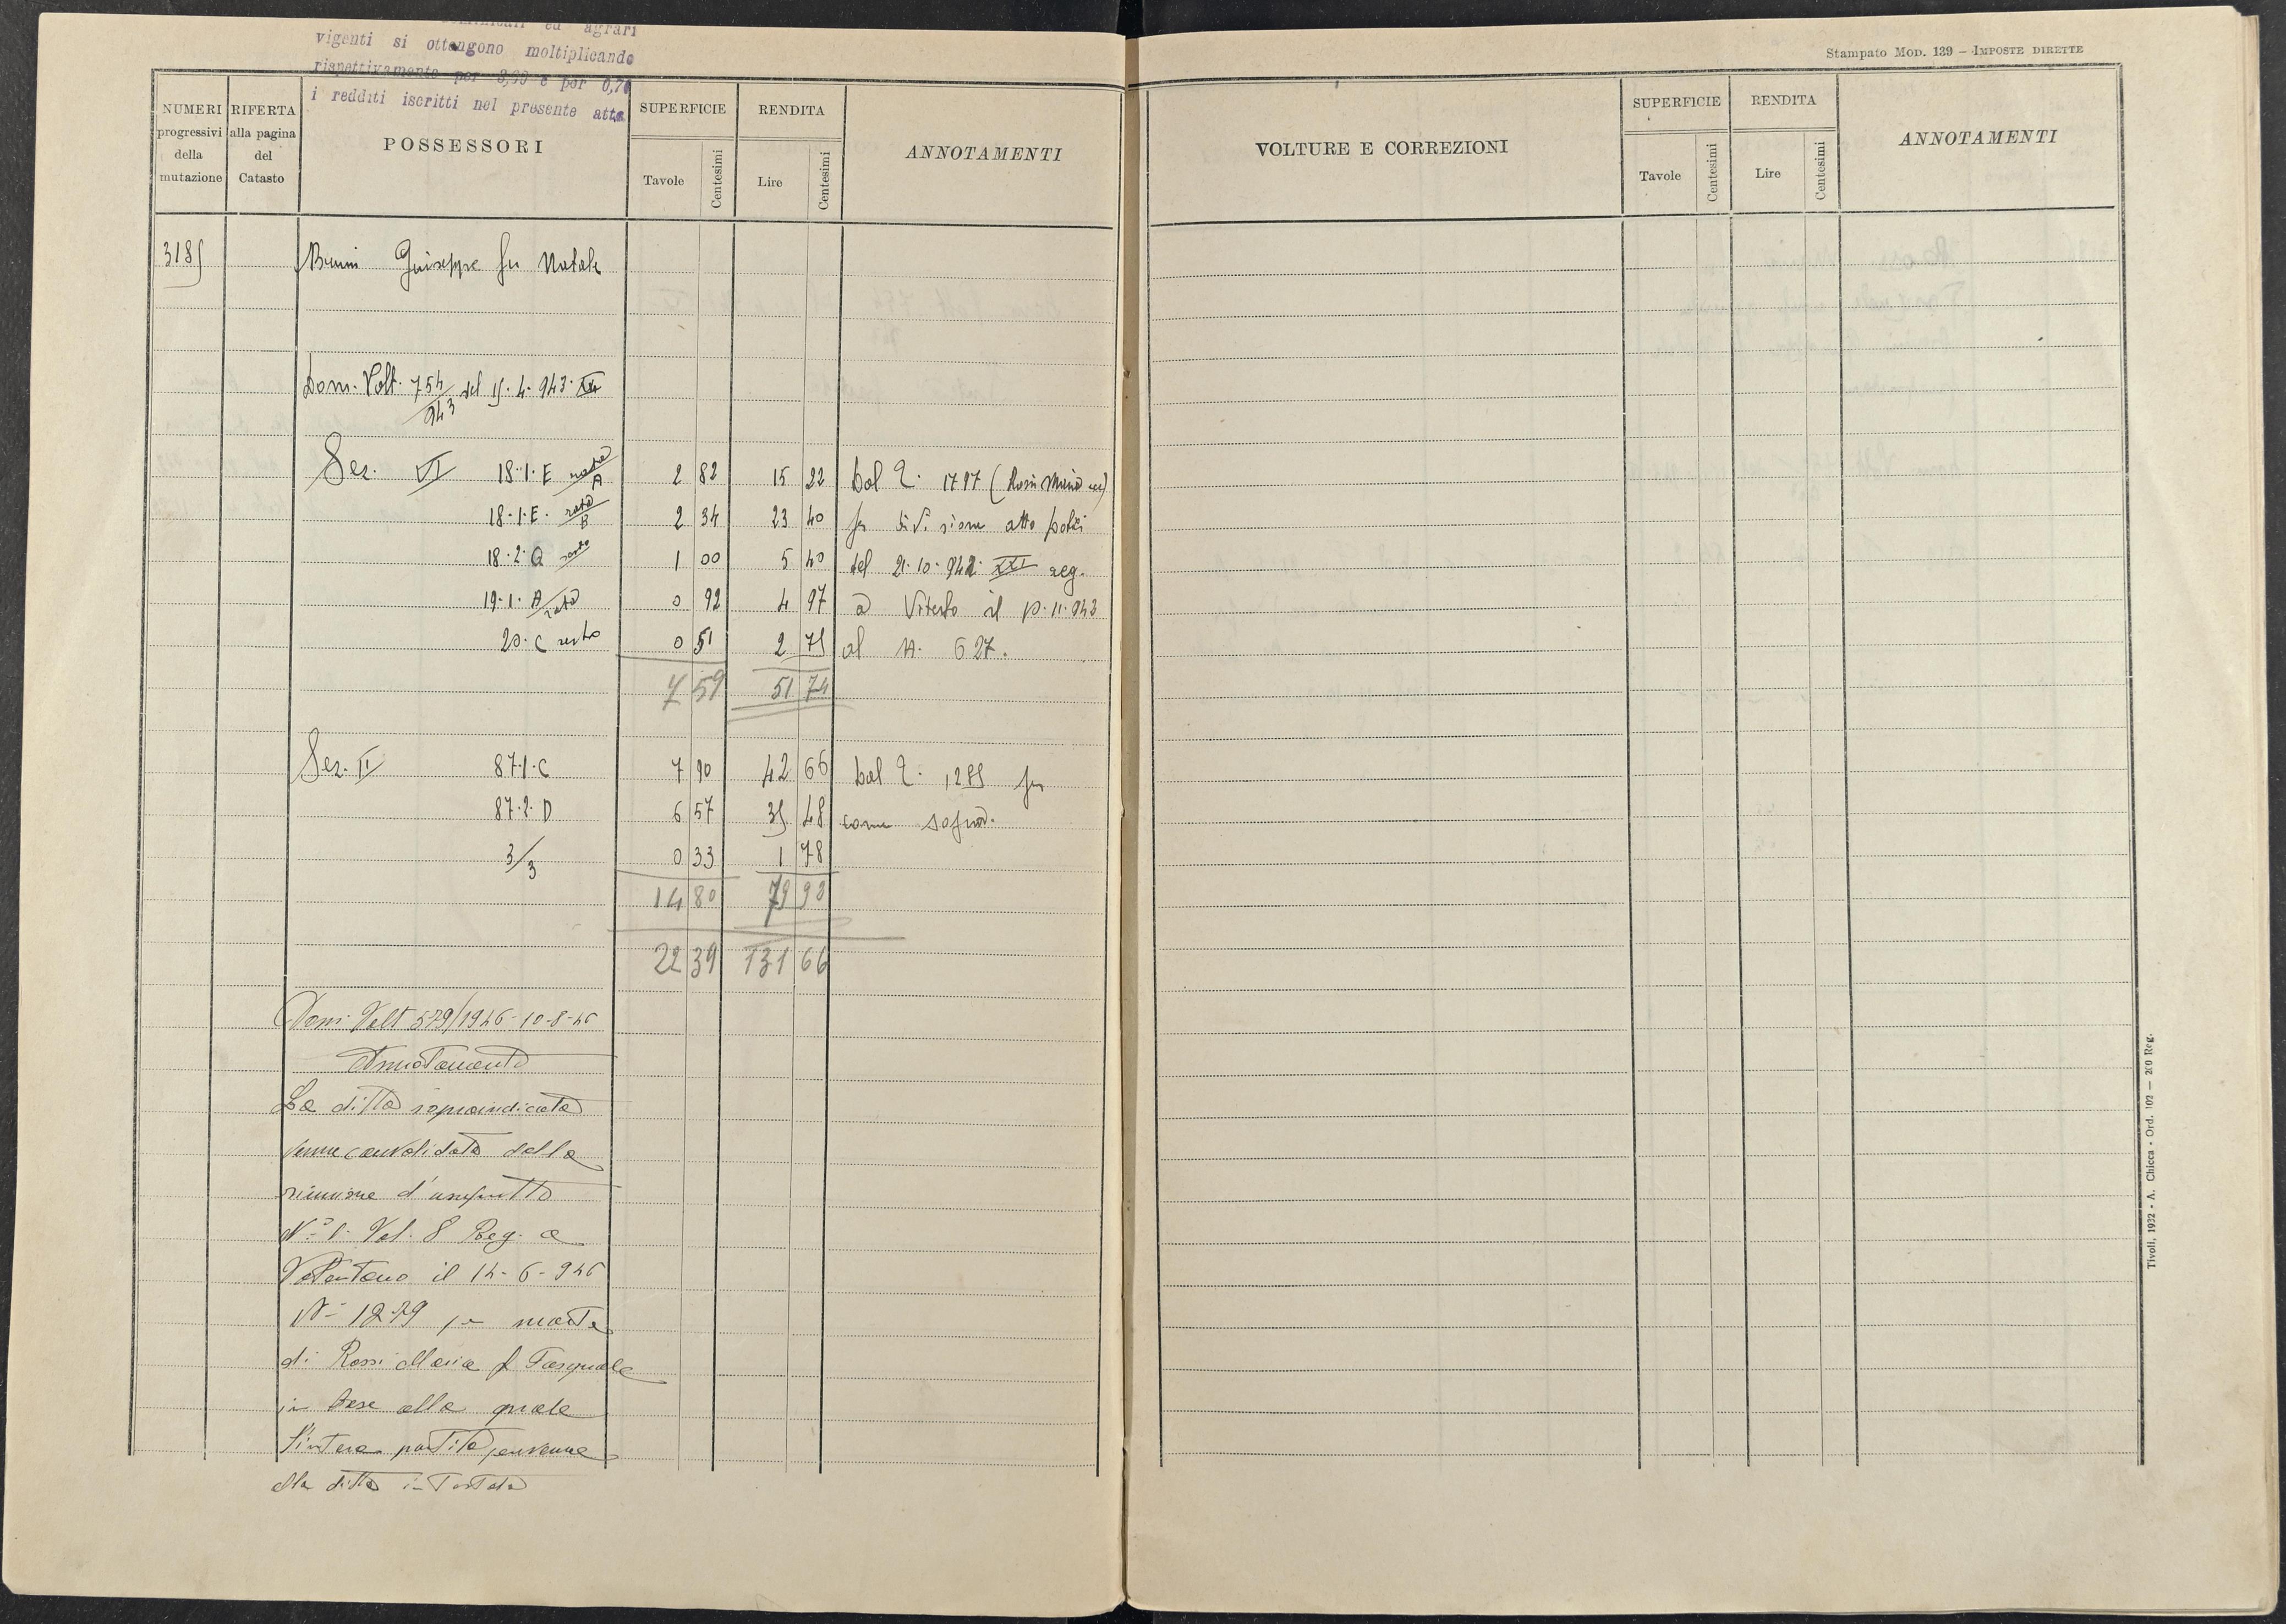 vigenti si ottengono moltiplicando
rispettivamente per e per 0,70
i redditi iscritti nel presente atto
NUMERI progressivi della mutazione
RIFERTA alla pagina del Catasto
POSSESSORI
SUPERFICIE
Tavole Centesimi
RENDITA
Lire Centesimi
ANNOTAMENTI
3185 Bruni Giuseppe fu Natale
Dom. Volt. 754/943 del 15.4.943.
Sez. VI 18.1.E rata A 2 82 15 22 Dal Q. 1797 (Rossi Maria ecc)
18.1.E. rata B 2 34 23 40 per divisione atto
18.2.Q resto 1 00 5 40 del 21.10.942. XXI reg.
19.1.A rata 0 92 4 97 a Viterbo il 10.11.942
20.C resto 0 51 2 75 al N. 627.
7 59 51 74
Sez. II 87.1.C 7 90 42 66 Dal Q. 1285 per
87.2.D 6 57 35 48 come sopra.
3/3 0 33 1 78
14 80 79 92
22 39 131 66
Dom. Volt 579/1946 - 10-8-46
Annotamento
La ditta sopraindicata
venne convalidata dalla
riunione d'usufrutto
N° 1. Vol. 8 Reg. a
Valentano il 14-6-946
N° 1279 per morte
di Rossi Maria f Pasquale
in base alla quale
l'intera partita pervenne
alla ditta intestata
Stampato MOD. 139 – IMPOSTE DIRETTE
VOLTURE E CORREZIONI
SUPERFICIE
Tavole Centesimi
RENDITA
Lire Centesimi
ANNOTAMENTI
Tivoli, 1932 - A. Chicca - Ord. 102 — 200 Reg.